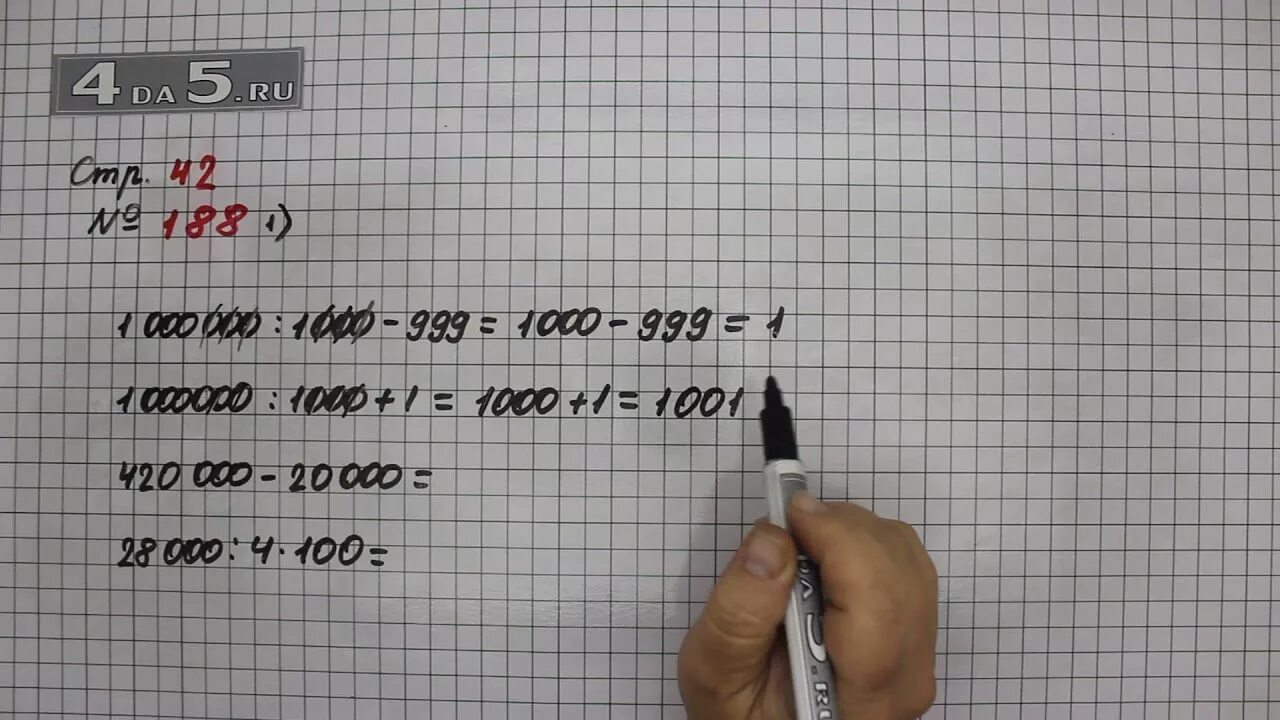 4 DA 5.RU
Стр. 42
№ 188 1)
1 000 000 : 1000 - 999 = 1000 - 999 = 1
1 000 000 : 1000 + 1 = 1000 + 1 = 1001
420 000 - 20 000 =
28 000 : 4 · 100 =
DA 5.RU